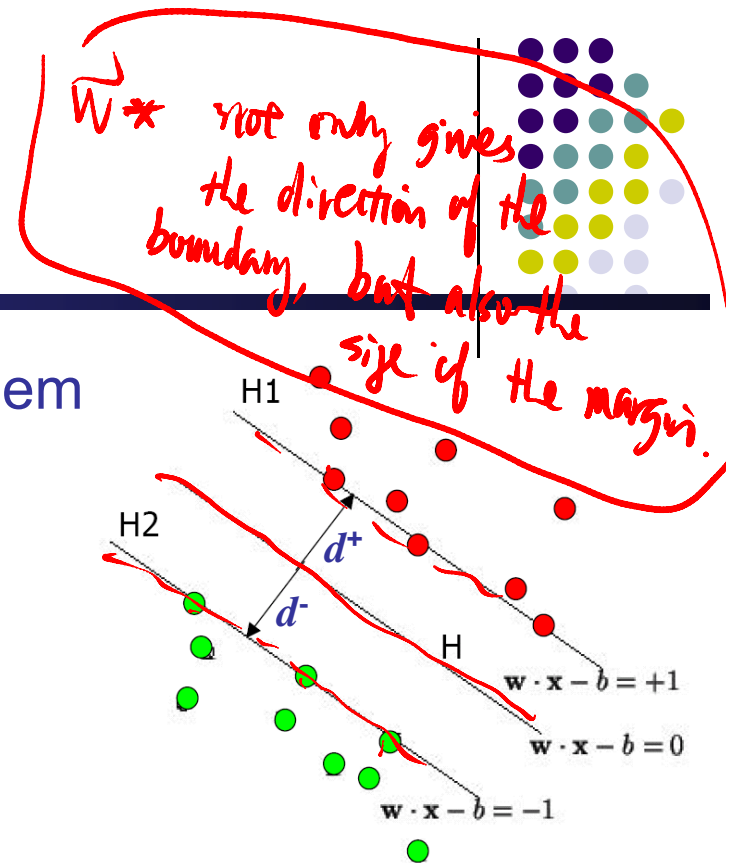 W* not only gives
the direction of the
boundary, but also the
size of the margin.
em
H1
H2
d+
d-
H
w · x − b = +1
w · x − b = 0
w · x − b = −1